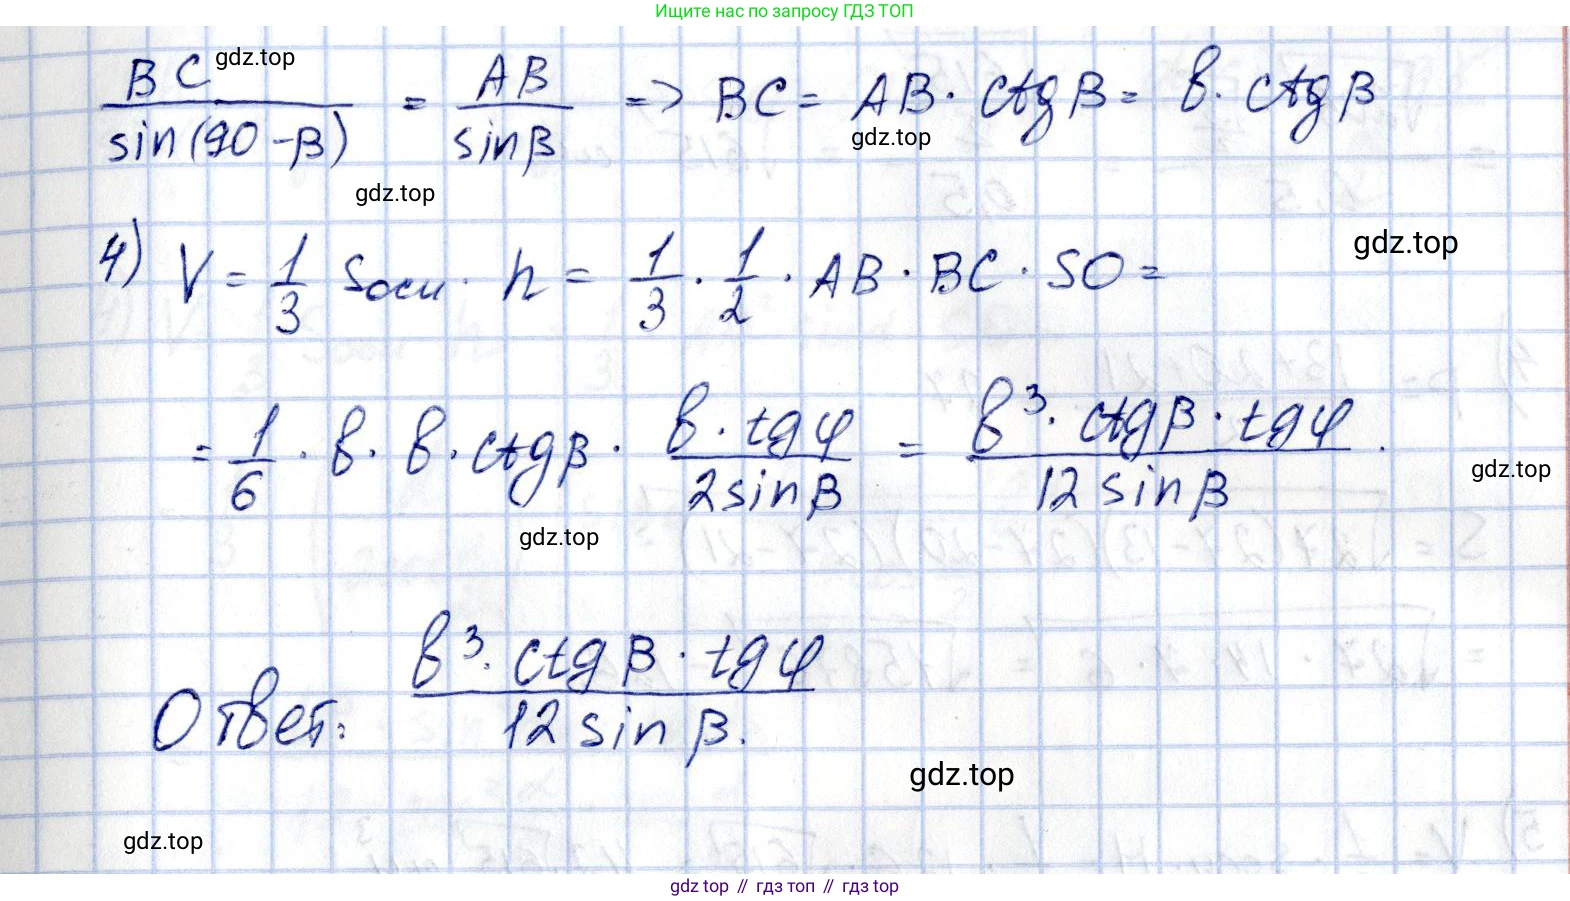 Ищите нас по запросу ГДЗ ТОП
BC / sin(90-β) = AB / sinβ => BC = AB · ctgβ = в · ctgβ
gdz.top
gdz.top
gdz.top
4) V = 1/3 Sосн · h = 1/3 · 1/2 · AB · BC · SO =
gdz.top
= 1/6 · в · в · ctgβ · в · tgφ / 2sinβ = в³ · ctgβ · tgφ / 12 sinβ .
gdz.top
gdz.top
Ответ: в³ · ctgβ · tgφ / 12 sin β.
gdz.top
gdz.top
gdz top // гдз топ // гдз top